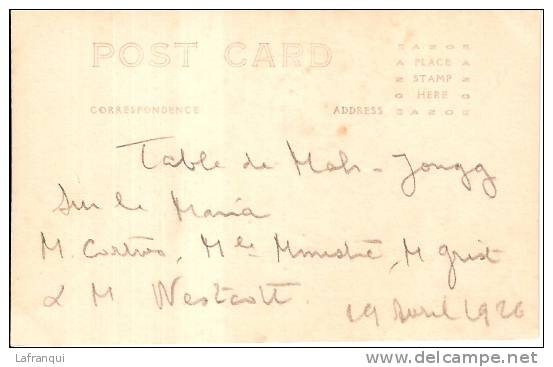 POST CARD
AZOR
A PLACE A
Z STAMP Z
O HERE O
AZOR
CORRESPONDENCE ADDRESS
Table de Mah-Jongg
Sur le Mania
M. Cortivo, Mle Ministre, M Grist
& M Westcott. 19 Avril 1926
Lafranqui
delcampe.net